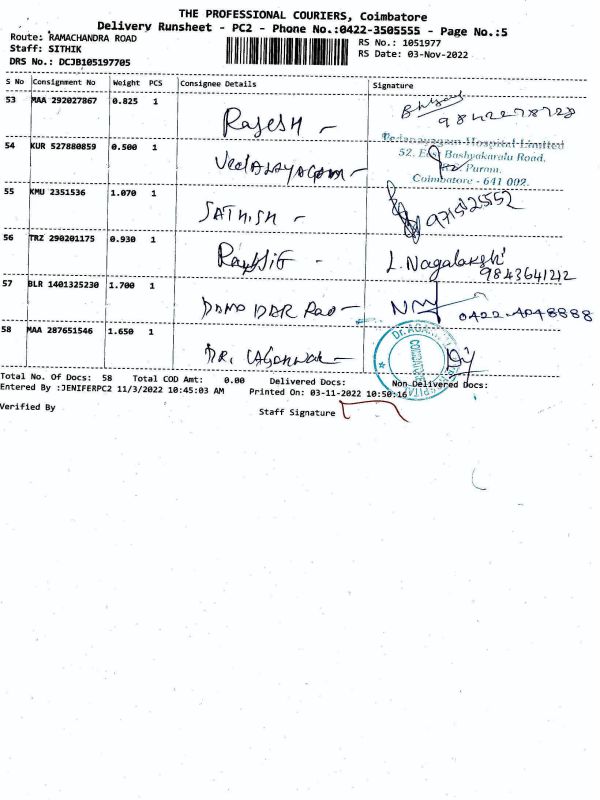 THE PROFESSIONAL COURIERS, Coimbatore
Delivery Runsheet - PC2 - Phone No.:0422-3505555 - Page No.:5
Route: RAMACHANDRA ROAD
RS No.: 1051977
Staff: SITHIK
RS Date: 03-Nov-2022
DRS No.: DCJB105197705
S No Consignment No Weight PCS Consignee Details Signature
53 MAA 292027867 0.825 1 Rajesh -
54 KUR 527880859 0.500 1
Vedanayagam Hospital Limited
52, East Bashyakaralu Road,
Puram,
Coimbatore - 641 002.
55 KMU 2351536 1.070 1 SATHISH -
56 TRZ 290201175 0.930 1 L. Nagalakshi
9843641212
57 BLR 1401325230 1.700 1 DAMODAR Rao - 0422-4048888
58 MAA 287651546 1.650 1 DR.
Total No. Of Docs: 58 Total COD Amt: 0.00 Delivered Docs: Non Delivered Docs:
Entered By :JENIFERPC2 11/3/2022 10:45:03 AM Printed On: 03-11-2022 10:50:16
Verified By Staff Signature